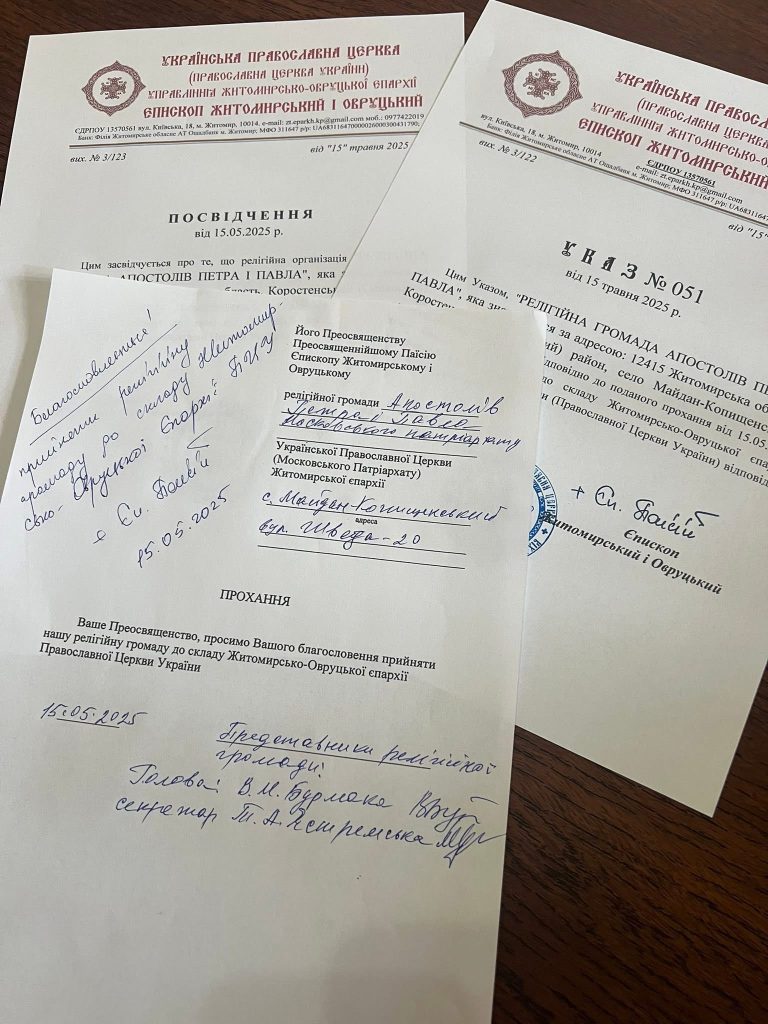 УКРАЇНСЬКА ПРАВОСЛАВНА ЦЕРКВА
(ПРАВОСЛАВНА ЦЕРКВА УКРАЇНИ)
УПРАВЛІННЯ ЖИТОМИРСЬКО-ОВРУЦЬКОЇ ЄПАРХІЇ
ЄПИСКОП ЖИТОМИРСЬКИЙ І ОВРУЦЬКИЙ
ЄДРПОУ 13570561 вул. Київська, 18, м. Житомир, 10014. e-mail: zt.eparkh.kp@gmail.com моб.: 0977422019
Банк: Філія Житомирське обласне АТ Ощадбанк м. Житомир; МФО 311647 р/р:
вих. № 3/123
від "15" травня 2025
ПОСВІДЧЕННЯ
від 15.05.2025 р.
Цим засвідчується про те, що релігійна організація
АПОСТОЛІВ ПЕТРА І ПАВЛА", яка
Коростенсь
УКРАЇНСЬКА ПРАВОСЛАВ
(ПРАВОСЛАВНА ЦЕРКВА
УПРАВЛІННЯ ЖИТОМИРСЬКО-О
ЄПИСКОП ЖИТОМИРСЬКИЙ
ЄДРПОУ 13570561
вул. Київська, 18, м. Житомир, 10014
e-mail: zt.eparkh.kp@gmail.com
Банк: Філія Житомирське обласне АТ Ощадбанк м. Житомир; МФО 311647 р/р:
вих. № 3/122
від "15"
УКАЗ № 051
від 15 травня 2025 р.
Цим Указом, "РЕЛІГІЙНА ГРОМАДА АПОСТОЛІВ ПЕ
ПАВЛА", яка
ся за адресою: 12415 Житомирська об
Коросте
район, село Майдан-Копищенс
ідповідно до поданого прохання від 15.05.
до складу Житомирсько-Овруцької єпа
и (Православної Церкви України) відповід
+ Єп. Паїсій
Єпископ
Житомирський і Овруцький
Благословляється!
прийняти релігійну
громаду до складу Житомир-
сько-Овруцької Єпархії ПЦУ
+ Єп. Паїсій
15.05.2025
Його Преосвященству
Преосвященнійшому Паїсію
Єпископу Житомирському і
Овруцькому
релігійної громади Апостолів
Петра і Павла
Московського патріархату
Української Православної Церкви
(Московського Патріархату)
Житомирської єпархії
с. Майдан-Копищенський
адреса
вул. Шведа-20
ПРОХАННЯ
Ваше Преосвященство, просимо Вашого благословення прийняти
нашу релігійну громаду до складу Житомирсько-Овруцької єпархії
Православної Церкви України
15.05.2025
Представники релігійної
громади:
Голова: В.М. Бурмака
секретар Т.А. Ястремська